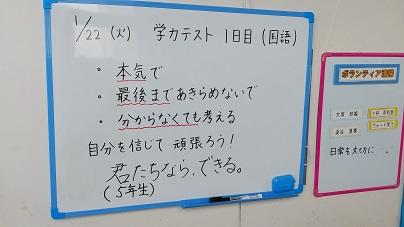 1/22 (火) 学力テスト 1日目 (国語)
・本気で
・最後まであきらめないで
・分からなくても考える
自分を信じて頑張ろう!
君たちなら、できる。
(5年生)
ボランティア活動